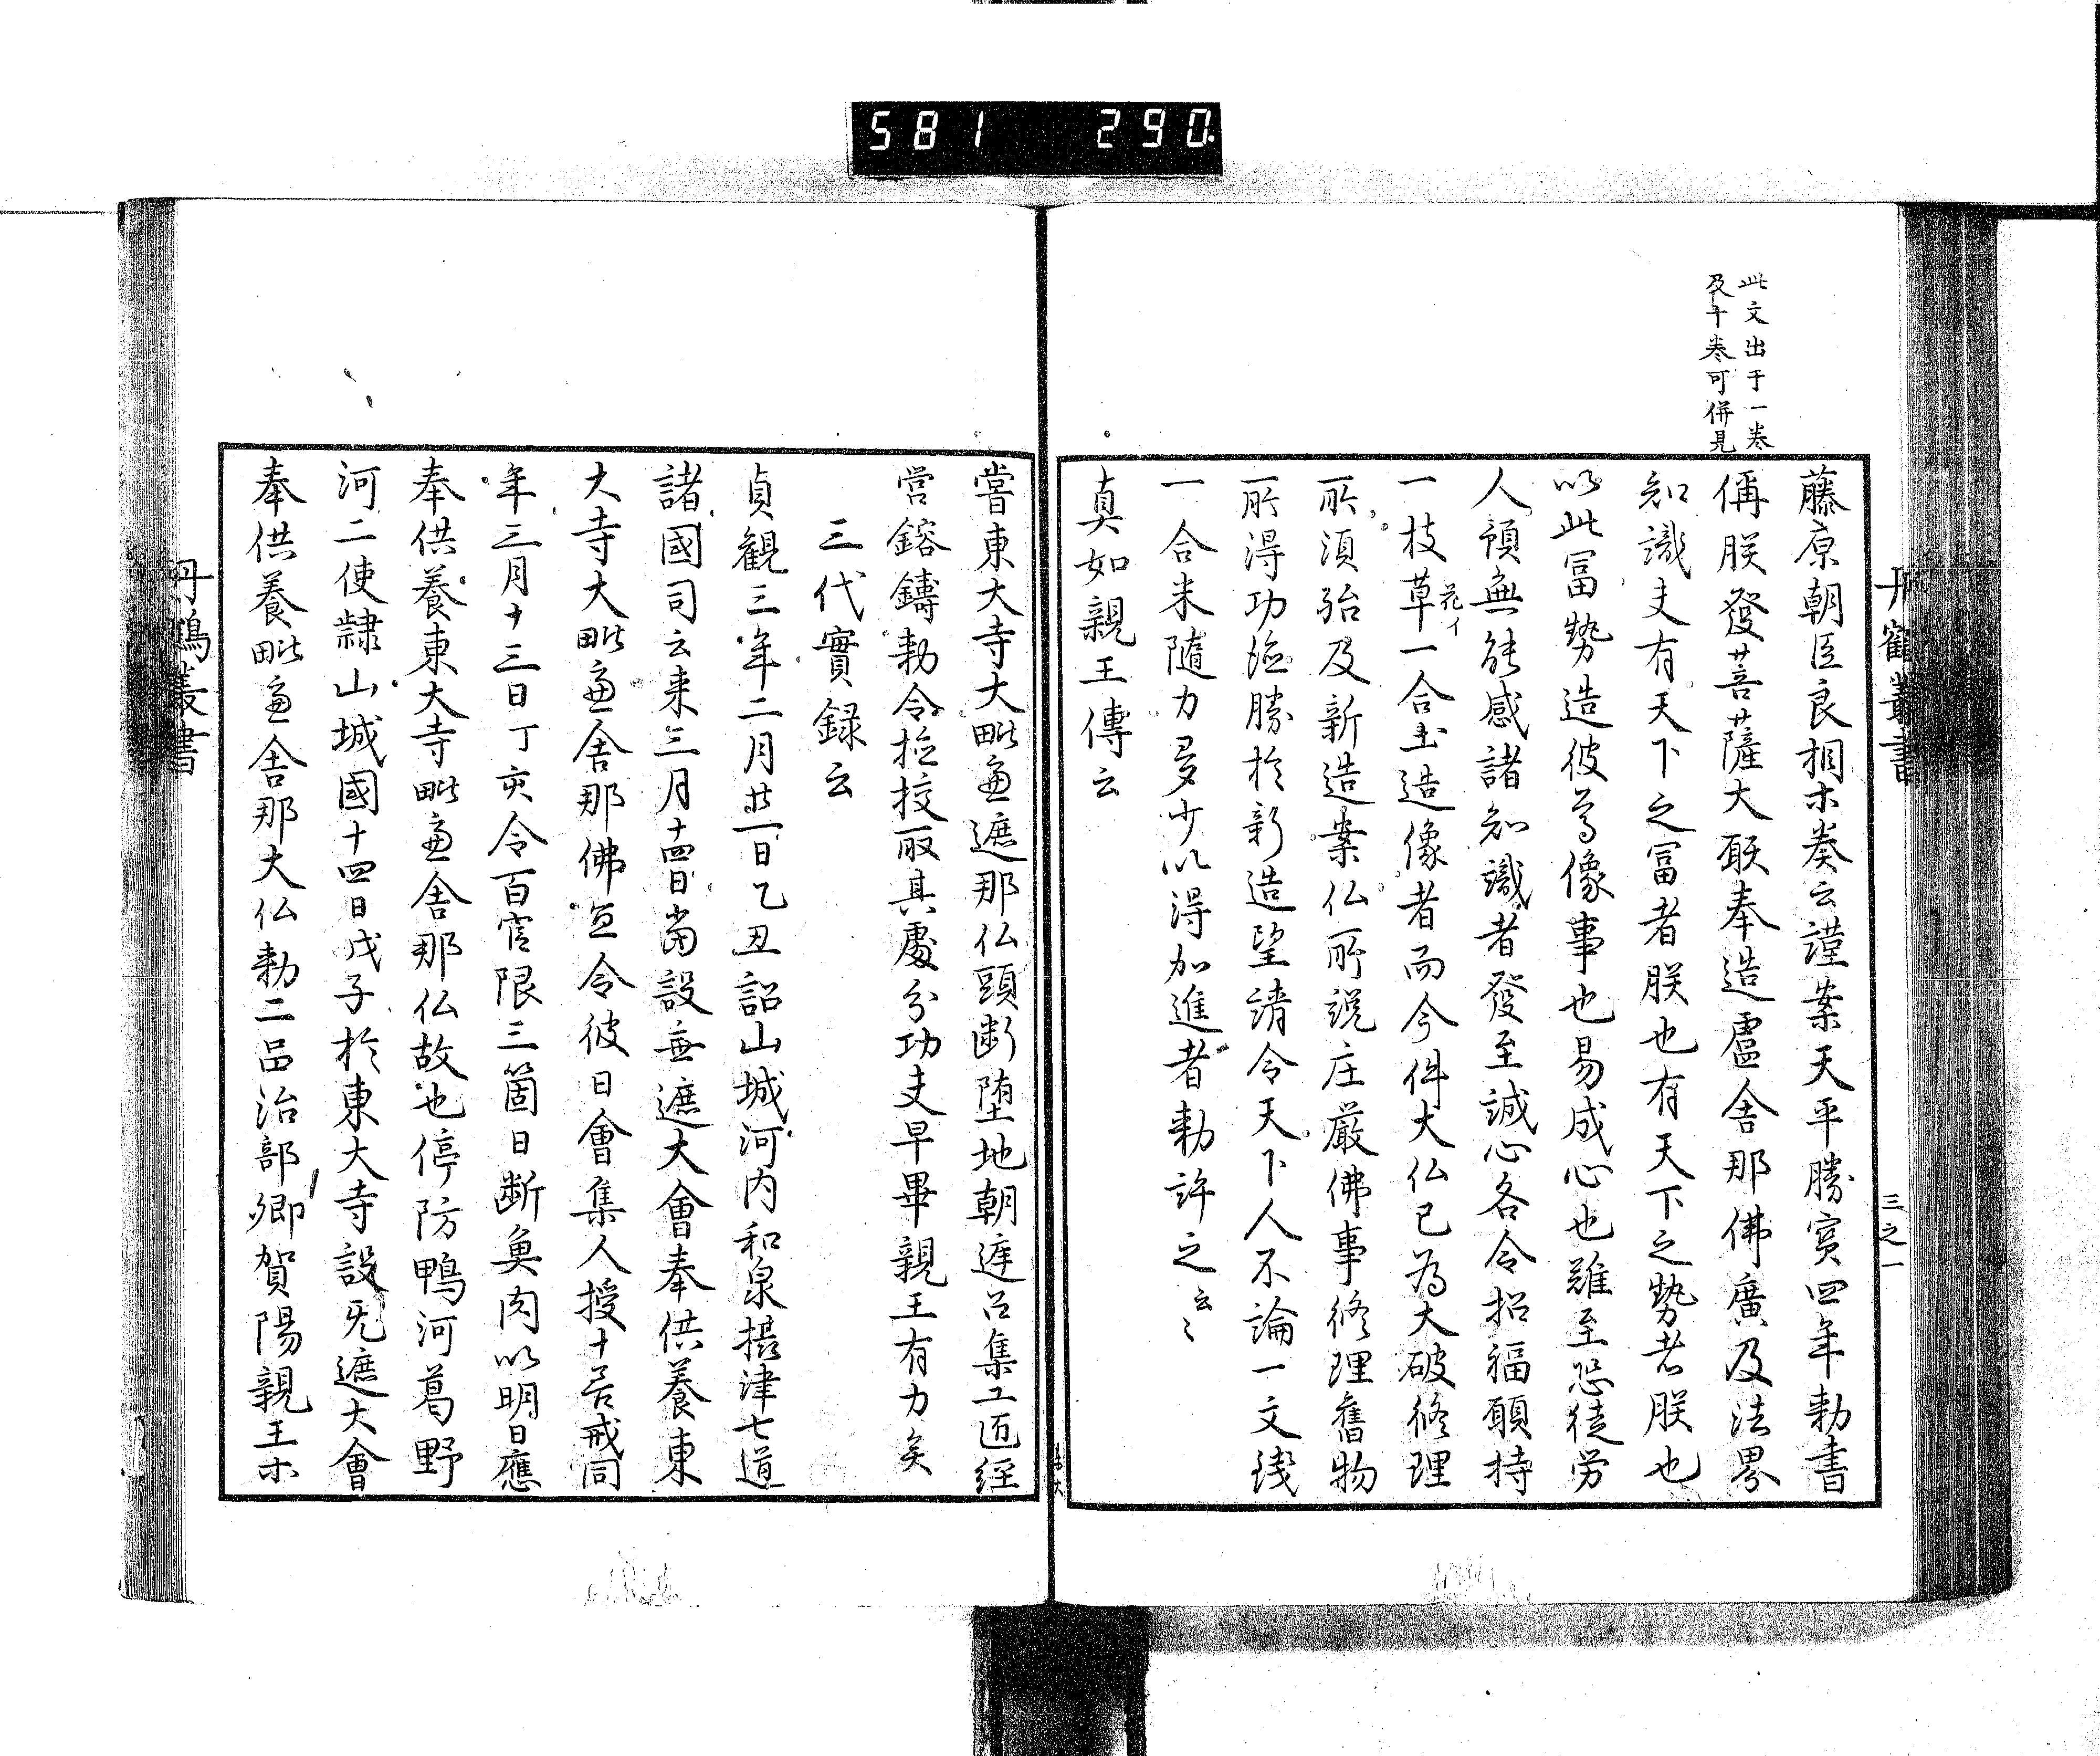 581 290.
丹鶴叢書
三之一
此文出于一巻
及十巻可併見
藤原朝臣良相木奏云謹案天平勝宝四年勅書
偁朕發菩薩大願奉造盧舎那佛廣及法界
知識夫有天下之冨者朕也有天下之勢者朕也
以此冨勢造彼尊像事也易成心也難至恐徒労
人預無能感諸知識者發至誠心各令招福願持
一枝草一合土造像者而今件大仏已為大破修理
花イ
所須殆及新造案仏所説庄厳佛事修理舊物
所得功徳勝於新造望請令天下人不論一文銭
一合米随力多少以得加進者勅許之云々
真如親王傳云
嘗東大寺大毗盧遮那仏頭断堕地朝遮召集工匠経
営鎔鑄勅令検挍取其處分功夫早畢親王有力矣
三代實録云
貞観三年二月廿一日乙丑詔山城河内和泉攝津七道
諸國司云来三月十四日当設無遮大會奉供養東
大寺大毗盧舎那佛宜令彼日會集人授十善戒同
年三月十三日丁亥令百官限三箇日断魚肉以明日應
奉供養東大寺毗盧舎那仏故也停防鴨河葛野
河二使隷山城國十四日戊子於東大寺設无遮大會
奉供養毗盧舎那大仏勅二品治部卿賀陽親王木
丹鶴叢書